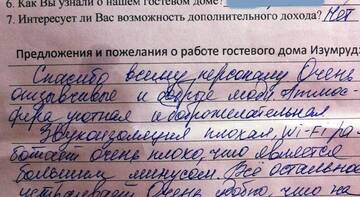 6. Как Вы узнали о нашем гостевом доме?
7. Интересует ли Вас возможность дополнительного дохода? Нет
Предложения и пожелания о работе гостевого дома Изумруд
Спасибо всему персоналу Очень
отзывчивые и добрые люди Атмос-
фера уютная и доброжелательная
Звукоизоляция плохая, Wi-Fi ра-
ботает очень плохо, что является
большим минусом. Всё остальное
устраивает Очень удобно, что на